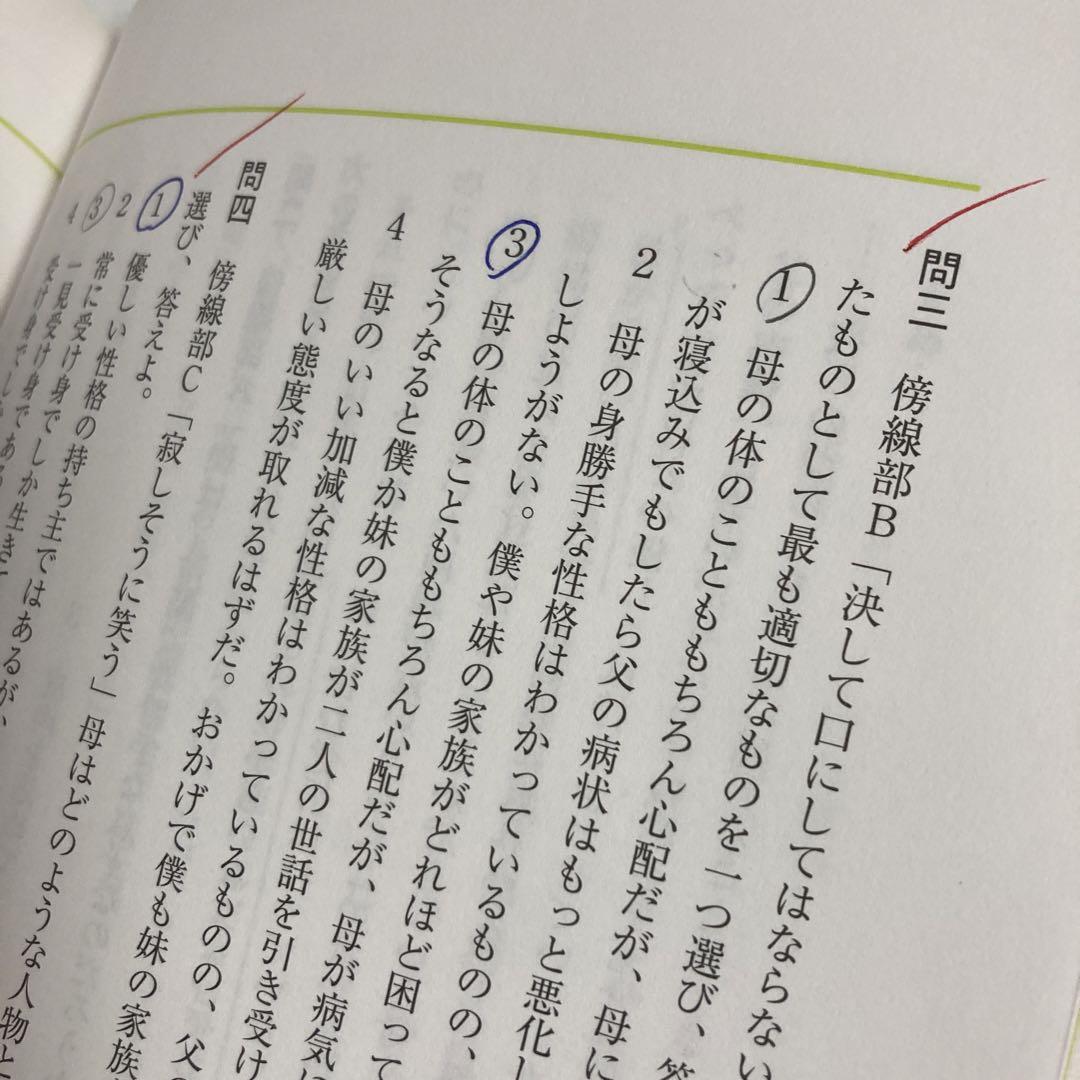 問三 傍線部B「決して口にしてはならない
たものとして最も適切なものを一つ選び、
1 母の体のことももちろん心配だが、母に
が寝込みでもしたら父の病状はもっと悪化し
2 母の身勝手な性格はわかっているものの、
しようがない。僕や妹の家族がどれほど困って
3 母の体のことももちろん心配だが、母が病気に
そうなると僕か妹の家族が二人の世話を引き受け
4 母のいい加減な性格はわかっているものの、父の
厳しい態度が取れるはずだ。おかげで僕も妹の家族
問四 傍線部C「寂しそうに笑う」母はどのような人物と
選び、答えよ。
1 優しい性格の持ち主ではあるが、
2 常に受け身でしか生き
3 一見受け身である
4 受け身でし